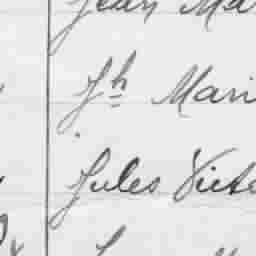 Jean Ma
Jh Mari
Jules Vict